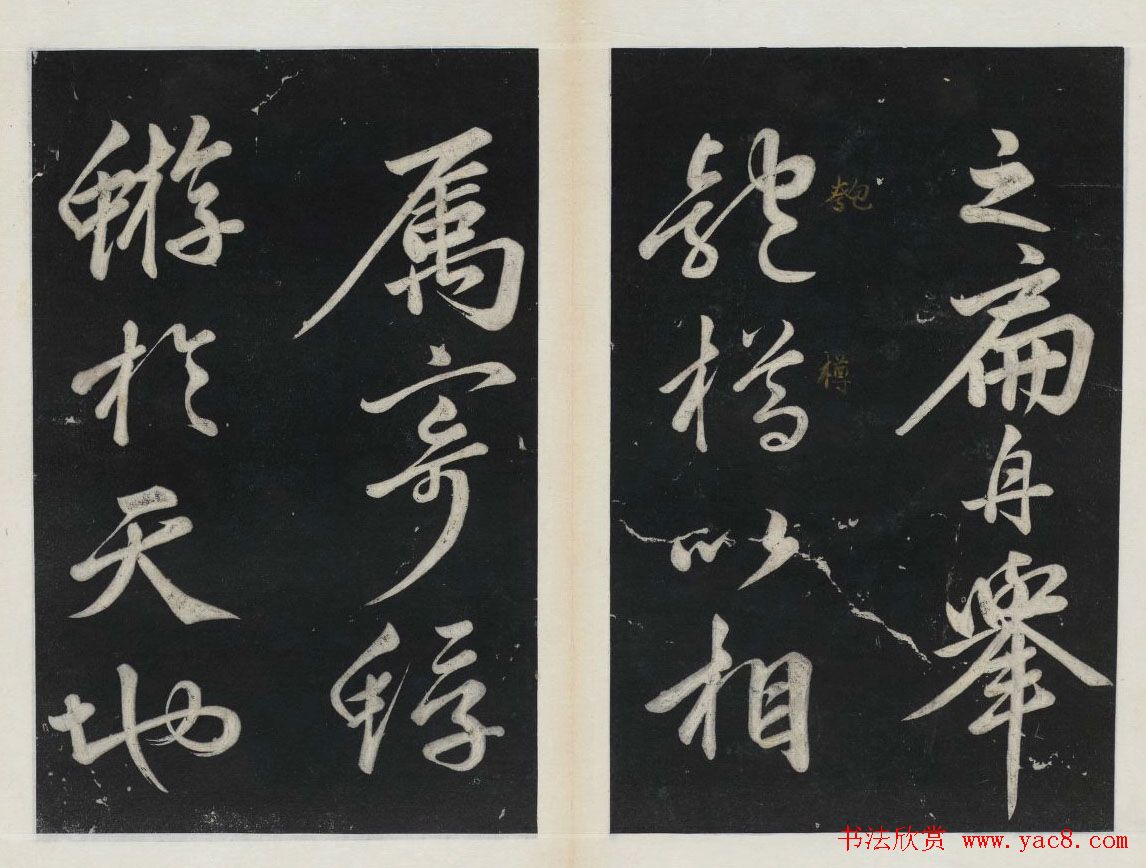 之扁舟舉
匏樽以相
属寄蜉
蝣於天地
匏
樽
书法欣赏 www.yac8.com